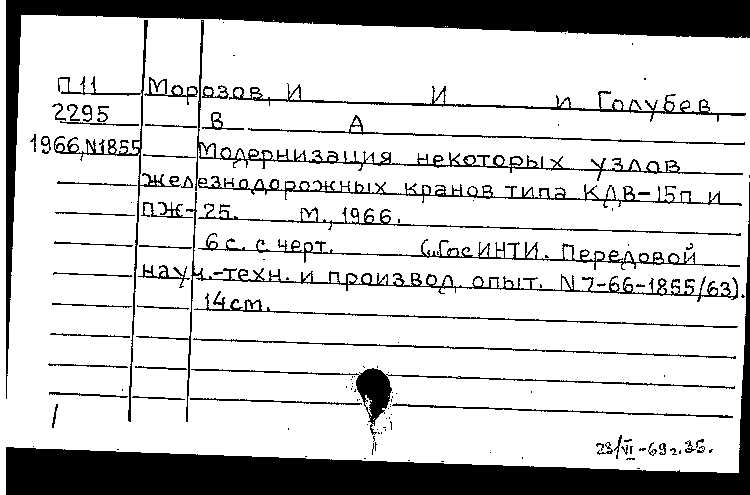 П11 Морозов, И И и Голубев,
2295 В А
1966,N1855 Модернизация некоторых узлов
железнодорожных кранов типа КДВ-15п и
ПЖ-25. М., 1966.
6 с. с черт. (ГосИНТИ. Передовой
науч.-техн. и производ. опыт. N7-66-1855/63).
14см.
23/VI-69г. 35.